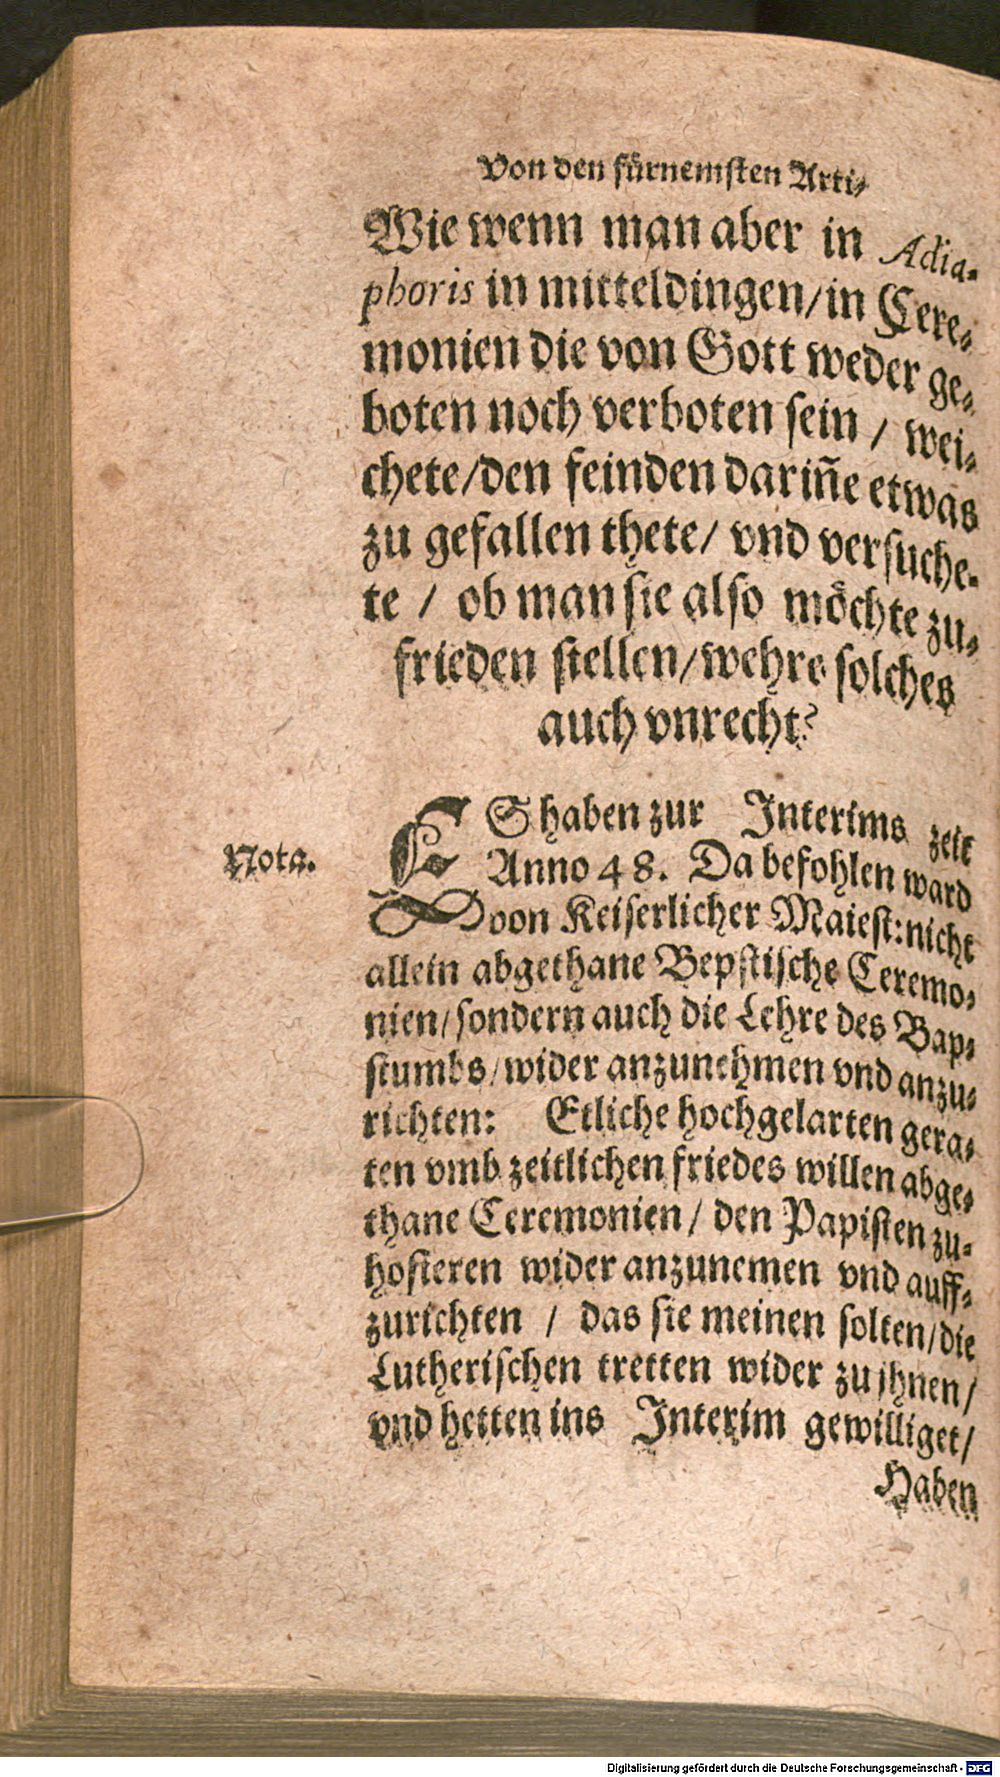 Von den fürnemsten Arti⸗
Wie wenn man aber in Adia-
phoris in mitteldingen/in Cere⸗
monien die von Gott weder ge⸗
boten noch verboten sein / wei⸗
chete/den feinden dariñe etwas
zu gefallen thete/ vnd versuche-
te / ob man sie also möchte zu⸗
frieden stellen/wehre solches
auch vnrecht?
Nota.
ES haben zur Interims zeit
Anno 48. Da befohlen ward
von Keiserlicher Maiest: nicht
allein abgethane Bepstische Ceremo⸗
nien/sondern auch die Lehre des Bap⸗
stumbs/wider anzunehmen vnd anzu⸗
richten: Etliche hochgelarten gera⸗
ten vmb zeitlichen friedes willen abge⸗
thane Ceremonien/ den Papisten zu⸗
hofieren wider anzunemen vnd auff⸗
zurichten / das sie meinen solten/die
Lutherischen tretten wider zu jhnen/
vnd hetten ins Interim gewilliget/
Haben
Digitalisierung gefördert durch die Deutsche Forschungsgemeinschaft - DFG